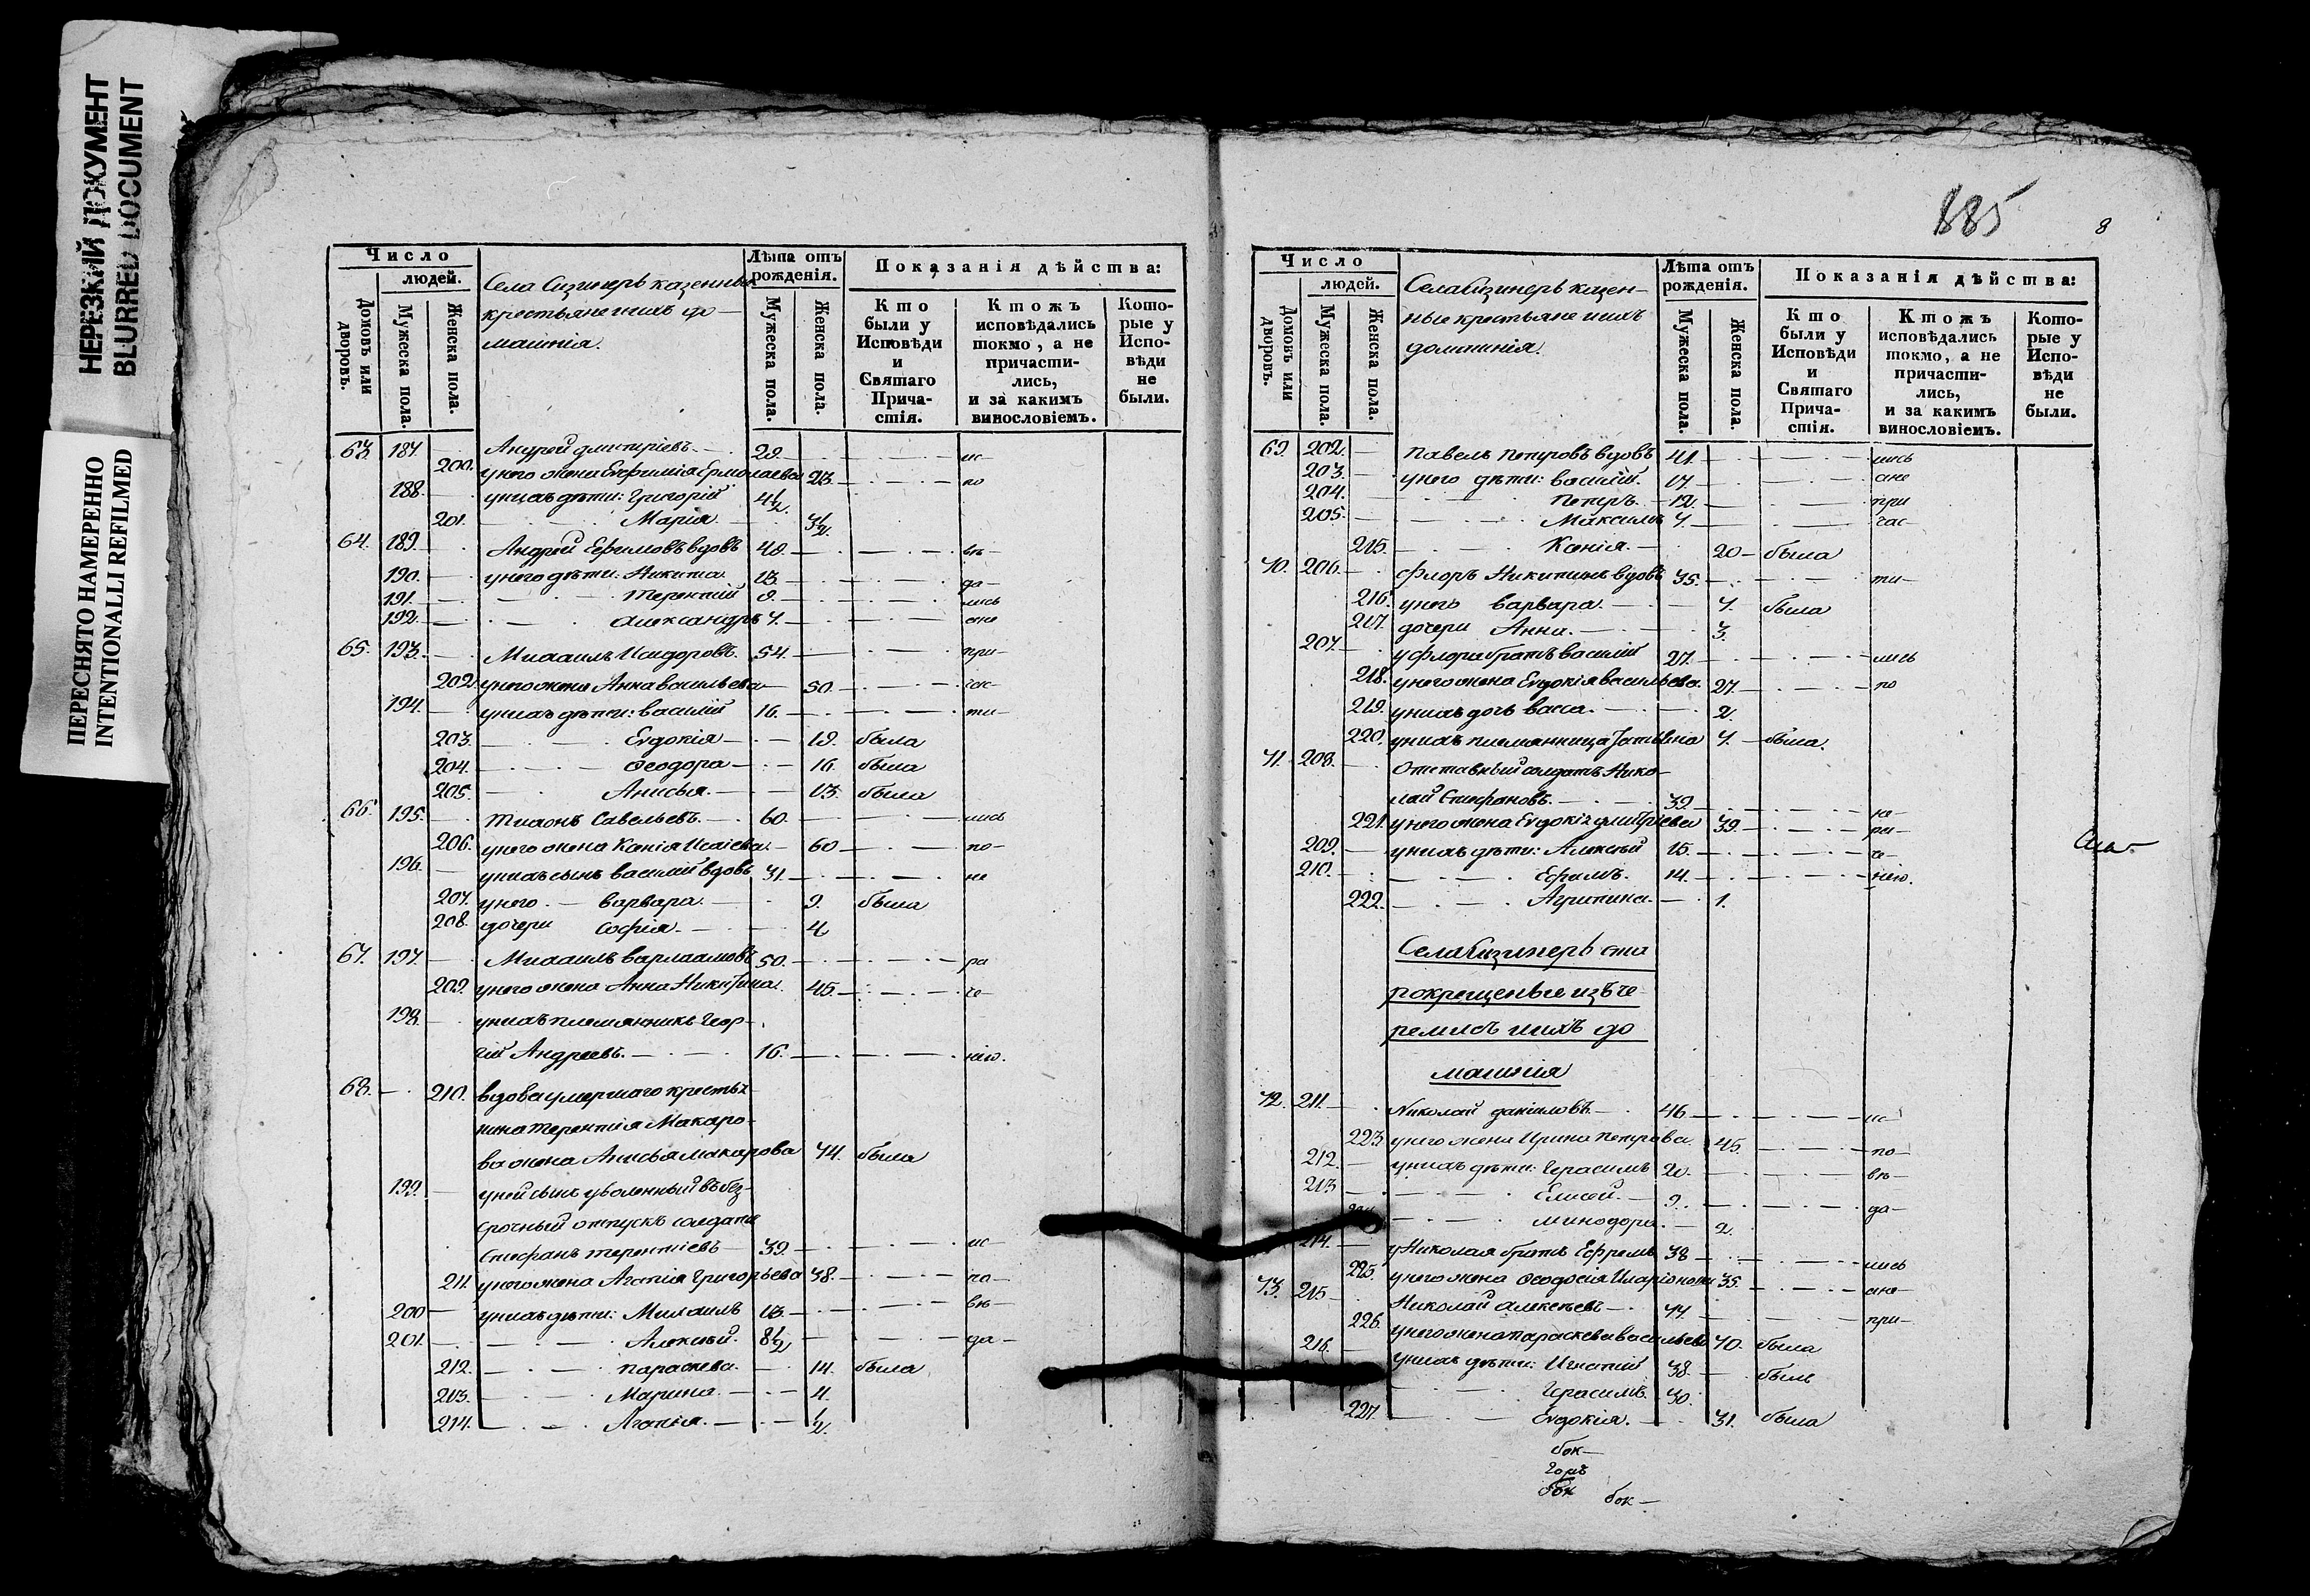 НЕРЕЗКИЙ ДОКУМЕНТ
BLURRED DOCUMENT
ПЕРЕСНЯТО НАМЕРЕННО
INTENTIONALLI REFILMED
Число
людей.
Домовъ или дворовъ.
Мужеска пола.
Женска пола.
Села Сизинерь казенныя
крестьяне ихъ до-
машнія.
Лѣта отъ рожденія.
Мужеска пола.
Женска пола.
Показанія дѣйства:
Кто были у Исповѣди и Святаго Причастія.
Ктожъ исповѣдались токмо, а не причастились, и за какимъ винословіемъ.
Которые у Исповѣди не были.
63. 187. Андрей Дмитріевъ. 29. ис
200. у него жена Евфимія Ермолаева 23. по
188. у нихъ дѣти: Григорій 4½.
201. Марія. 3½.
64. 189. Андрей Ефимовъ вдовъ 48. вѣ
190. у него дѣти: Никита. 13. да
191. Терентій 9. лись
192. Александръ 7. ане
65. 193. Михаилъ Исидоровъ. 54. при
202. у него жена Анна Васильева 50. час
194. у нихъ дѣти: Василій 16. ти
203. Евдокія 19. была
204. Ѳеодора 16. была
205. Анисья. 13. была
66. 195. Тихонъ Савельевъ. 60. лись
206. у него жена Ксенія Исаіева. 60 по
196. у нихъ сынъ Василій вдовъ 31. не
207. у него Варвара. 9. была
208. дочери Софія. 4
67. 197. Михаилъ Варлаамовъ 50. ра
209. у него жена Анна Никитина. 45. че
198. у нихъ племянникъ Геор-
гій Андреевъ. 16. нію.
68. 210. вдова умершаго крестья-
нина Терентія Макаро-
ва жена Анисья Макарова 74. была
199. у ней сынъ уволенный въ без-
срочный отпускъ солдатъ
Стефанъ Терентіевъ 39. ис
211. у него жена Агапія Григорьева 38. по
200 у нихъ дѣти: Михаилъ 13. вѣ
201. Алексѣй. 8½ да
212. Параскева. 14. была
213. Марина. 4.
214. Агапія. ½.
885
8
Число
людей.
Домовъ или дворовъ.
Мужеска пола.
Женска пола.
Села Сизинерь казен-
ные крестьяне ихъ
домашнія.
Лѣта отъ рожденія.
Мужеска пола.
Женска пола.
Показанія дѣйства:
Кто были у Исповѣди и Святаго Причастія.
Ктожъ исповѣдались токмо, а не причастились, и за какимъ винословіемъ.
Которые у Исповѣди не были.
69. 202. Павелъ Петровъ вдовъ 41. лись
203. у него дѣти: Василій. 17. ане
204. Петръ. 12. при
205. Максимъ 7. час
215. Ксенія. 20 была
70. 206. Флоръ Никитинъ вдовъ 35. ти
216. у него Варвара. 7. была
217. дочери Анна. 3.
207. у Флора братъ Василій 27. лись
218. у него жена Евдокія Васильева. 27. по
219. у нихъ дочь Васса. 2.
220. у нихъ племянница Татьяна 7. была.
71. 208. Отставный солдатъ Нико-
лай Стефановъ. 39.
221. у него жена Евдокія Дмитріева 39. ра
209. у нихъ дѣти: Алексѣй 15. че
210. Ефимъ. 14. нію.
222. Агрипина. 1.
Села Сизинерь ста
рокрещеные изъ че-
ремисъ ихъ до
машнія
72. 211. Николай Даніиловъ. 46 ис
223. у него жена Ирина Петрова. 45. по
212. у нихъ дѣти: Герасимъ 20. вѣ
213 Елисей. 9. да
Минодора. 2.
214. у Николая братъ Ефремъ 38 лись
225. у него жена Ѳеодосія Иларіонова 35. ане
73. 215 Николай Алексѣевъ 77. при
226. у него жена Параскева Васильева 70. была
216. у нихъ дѣти: Игнатій 38. былъ
Герасимъ. 30.
227. Евдокія. 31. была
бок